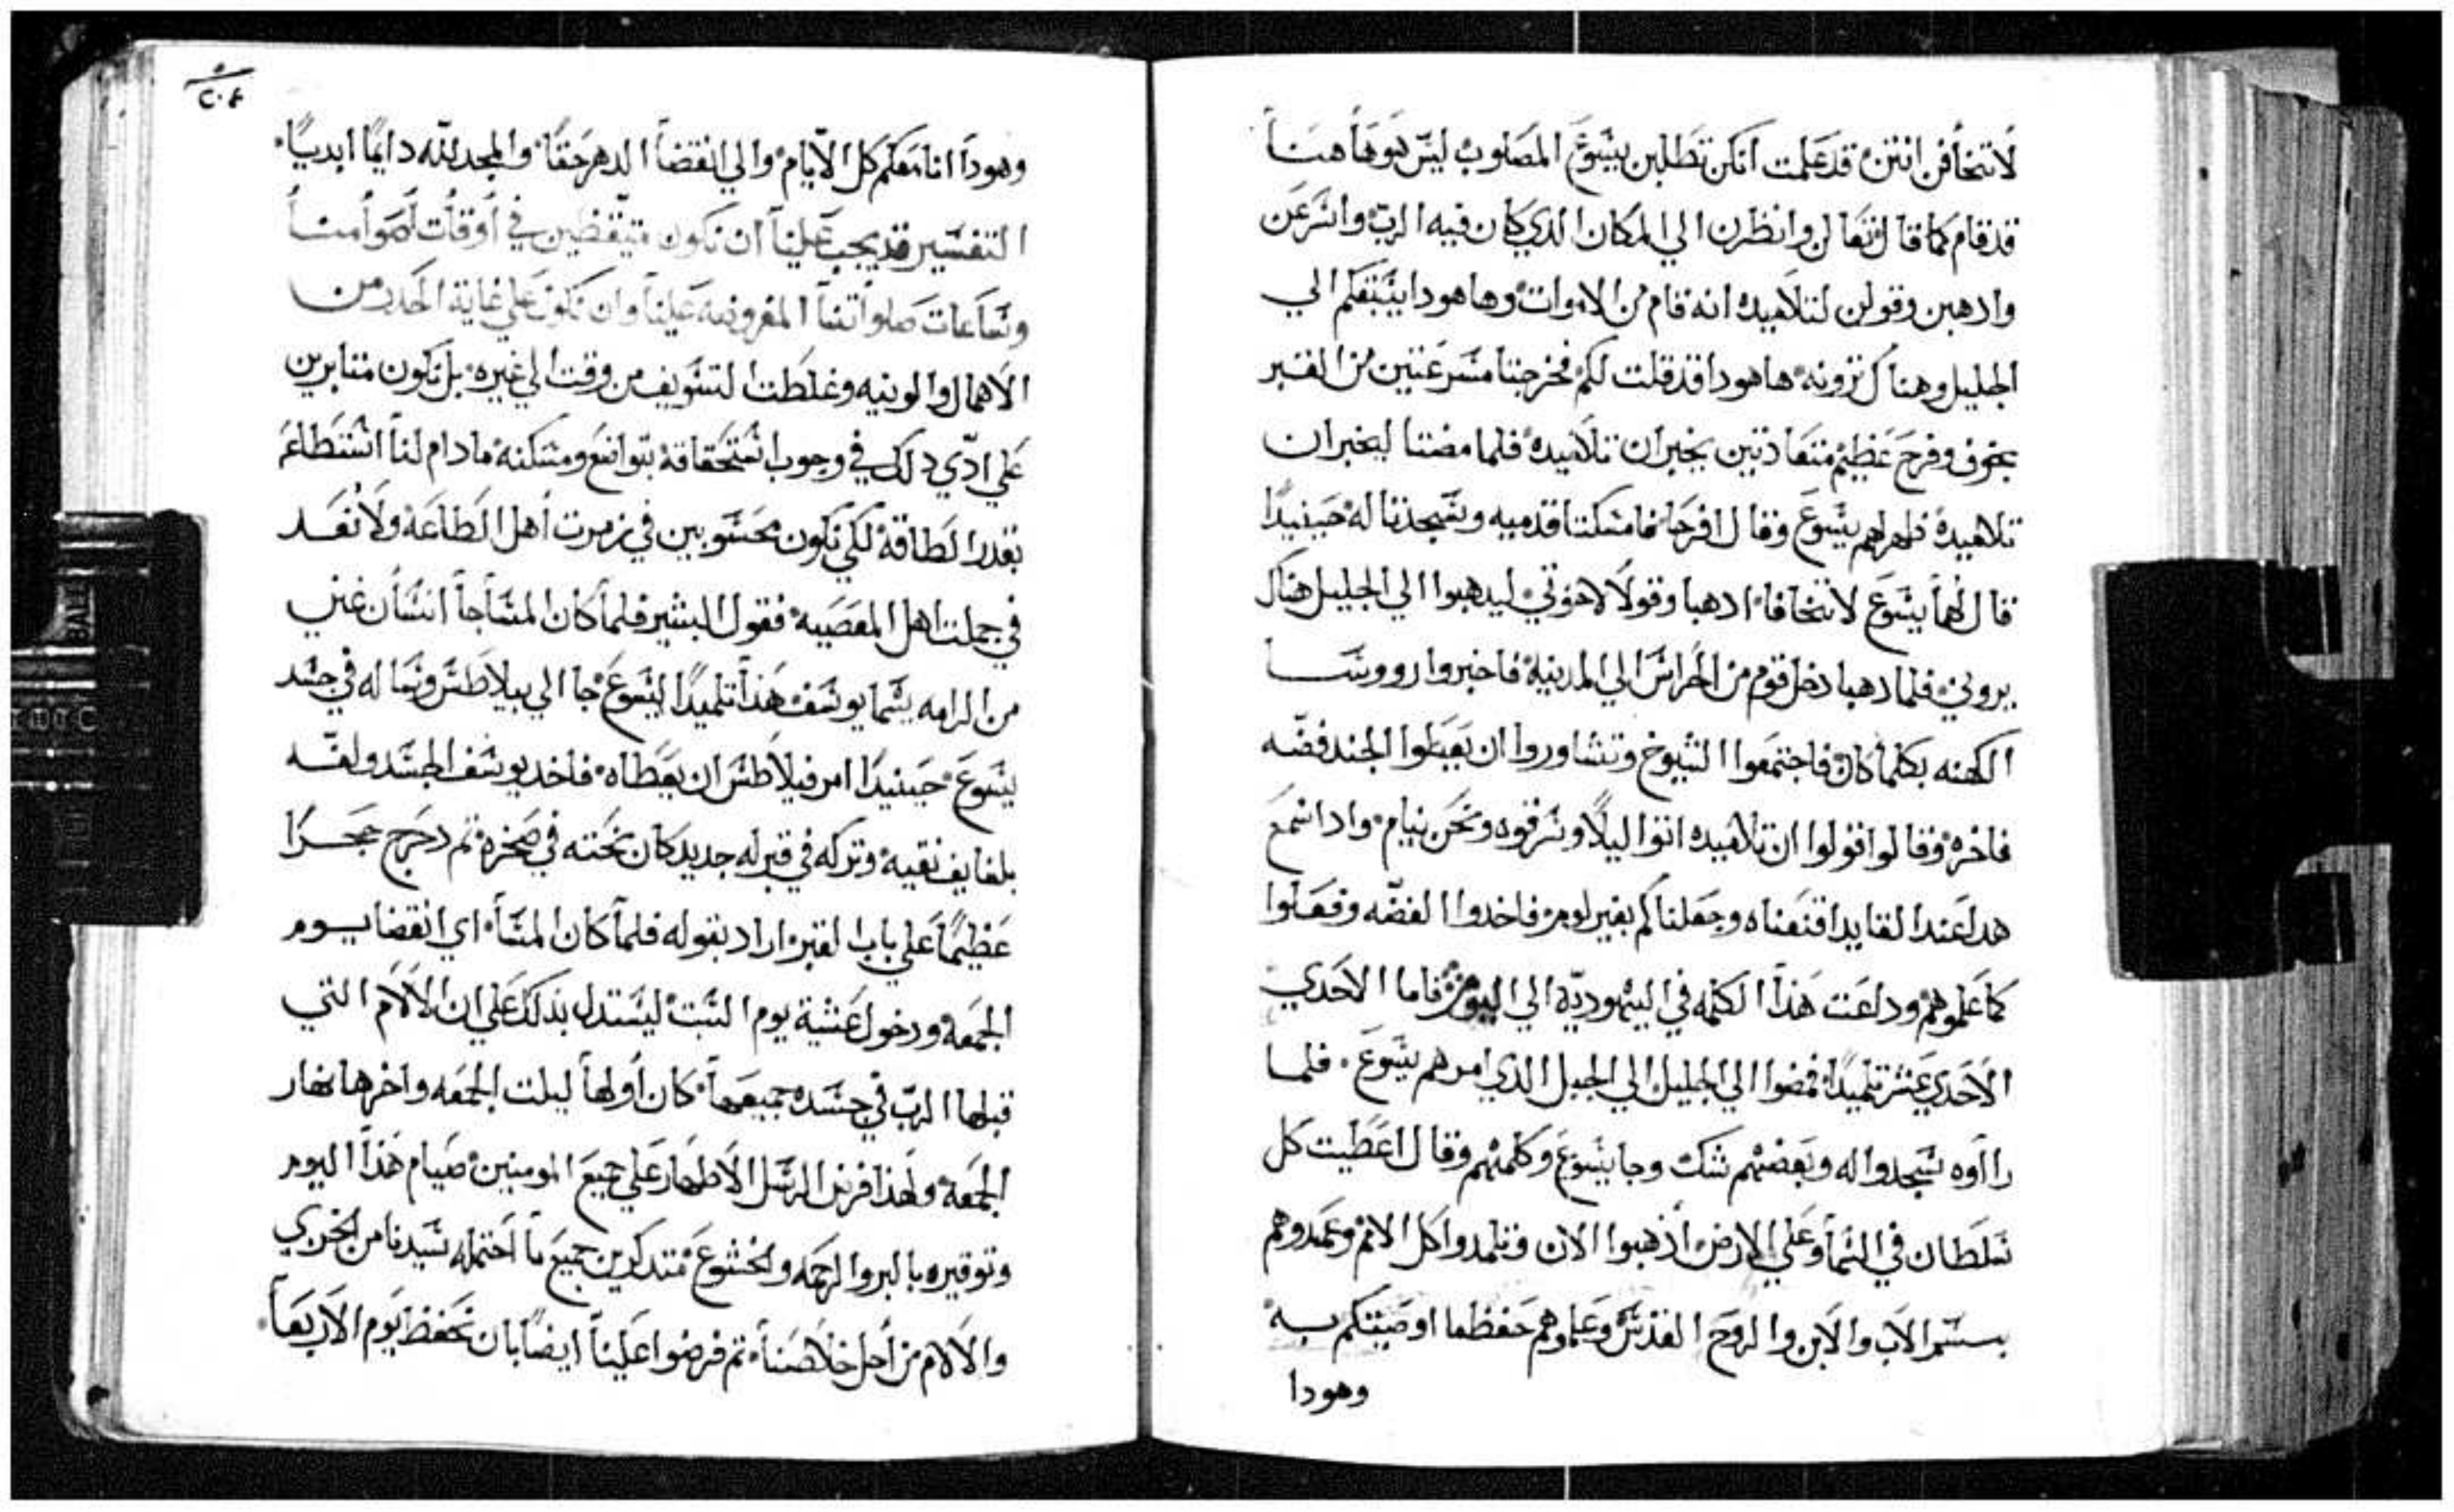 لاتخافن انتن قد علمت انكن تطلبن يسوع المصلوب ليس هو هاهنا
قد قام كما قال تعالن وانظرن الي المكان الدي كان فيه الرب واسرعن
وادهبن وقولن لتلاميده انه قام من الاموات وهاهودا يسبقكم الي
الجليل وهناك ترونه هاهودا قد قلت لكم فخرجتا مسرعتين من القبر
بخوف وفرح عظيم متعاديتين يخبران تلاميده فلما مضتا ليخبران
تلاميده ظهر لهم يسوع وقال افرحا فامسكتا قدميه وسجدتا له حينيدا
قال لهما يسوع لاتخافا ادهبا وقولا لاخوتي ليدهبوا الي الجليل هناك
يروني فلما دهبا دخل قوم من الحراس الي المدينة فاخبروا رووسا
الكهنه بكلما كان فاجتمعوا الشيوخ وتشاوروا ان يعطوا الجند فضه
فاخره وقالوا قولوا ان تلاميده اتوا ليلا وسرقوه ونحن نيام وادا سمع
هدا عند القايد اقنعناه وجعلناكم بغير لوم فاخدوا الفضه وفعلوا
كما علموهم وداعت هذا الكلمه في اليهوديه الي اليوم فاما الاحدي
الاحدي عشر تلميدا فمضوا الي الجليل الي الجبل الدي امرهم يسوع فلما
رااوه سجدوا له وبعضهم شك وجا يسوع وكلمهم وقال اعطيت كل
سلطان في السما وعلي الارض أذهبوا الان وتلمدوا كل الامم وعمدوهم
بسم الاب والابن والروح القدس وعلموهم حفظ ما اوصيتكم به
وهودا
٢٠٤
وهودا انا معكم كل الايام والي انقضا الدهر حقا والمجد لله دايما ابديا
التفسير قد يجب علينا ان نكون متيقظين في أوقات أصوامنا
وساعات صلواتنا المفروضه علينا وان نكون علي غاية الحدر من
الاهمال والونيه وغلطت التسويف من وقت الي غيره بل نكون متابرين
علي ادي دلك في وجوب استحقاقه بتواضع ومسكنه مادام لنا استطاعه
بقدر الطاقة لكي نكون محسوبين في زمرت أهل الطاعة ولا نعد
في جملت اهل المعصيه فقول البشير فلما كان المسا جا انسان غني
من الرامه يسما يوسف هذا تلميدا ليسوع جا الي بيلاطس وساله في جسد
يسوع حينيدا امر فيلاطس ان يعطاه فاخد يوسف الجسد ولفه
بلفايف نقيه وتركه في قبر له جديد كان نحته في صخره تم دحرج حجرا
عظيما علي باب القبر اراد بقوله فلما كان المسأ اي انقضا يوم
الجمعه ودخول عشية يوم السبت ليستدل بذلك علي ان الالام التي
قبلها الرب في جسده جميعها كان أولها ليلت الجمعه واخرها نهار
الجمعه ولهذا فرض الرسل الاطهار علي جميع المومنين صيام هذا اليوم
وتوقيره بالبر والرحمه والخشوع متدكرين جميع ما احتمله سيدنا من الخزي
والالام من أجل خلاصنا تم فرضوا علينا ايضا بان نحفظ يوم الاربعا